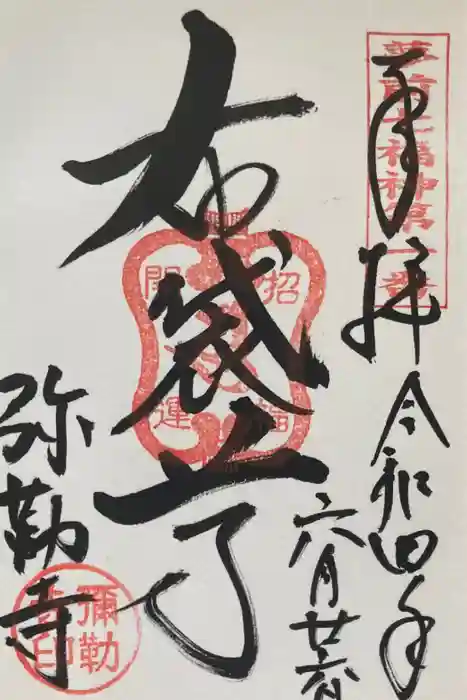 夢前七福神第一番
奉拝
令和四年
六月廿六日
布袋尊
招福
開運
弥勒寺
彌勒寺印